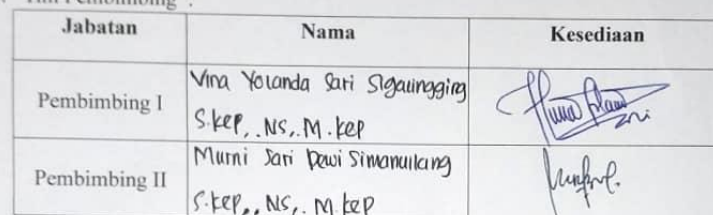 Tim Pembimbing :
Jabatan Nama Kesediaan
Pembimbing I
Vina Yolanda Sari Sigalingging
S.kep,. NS,. M.kep
Pembimbing II
Murni Sari Dewi Simanullang
S.kep,. NS,. M.kep